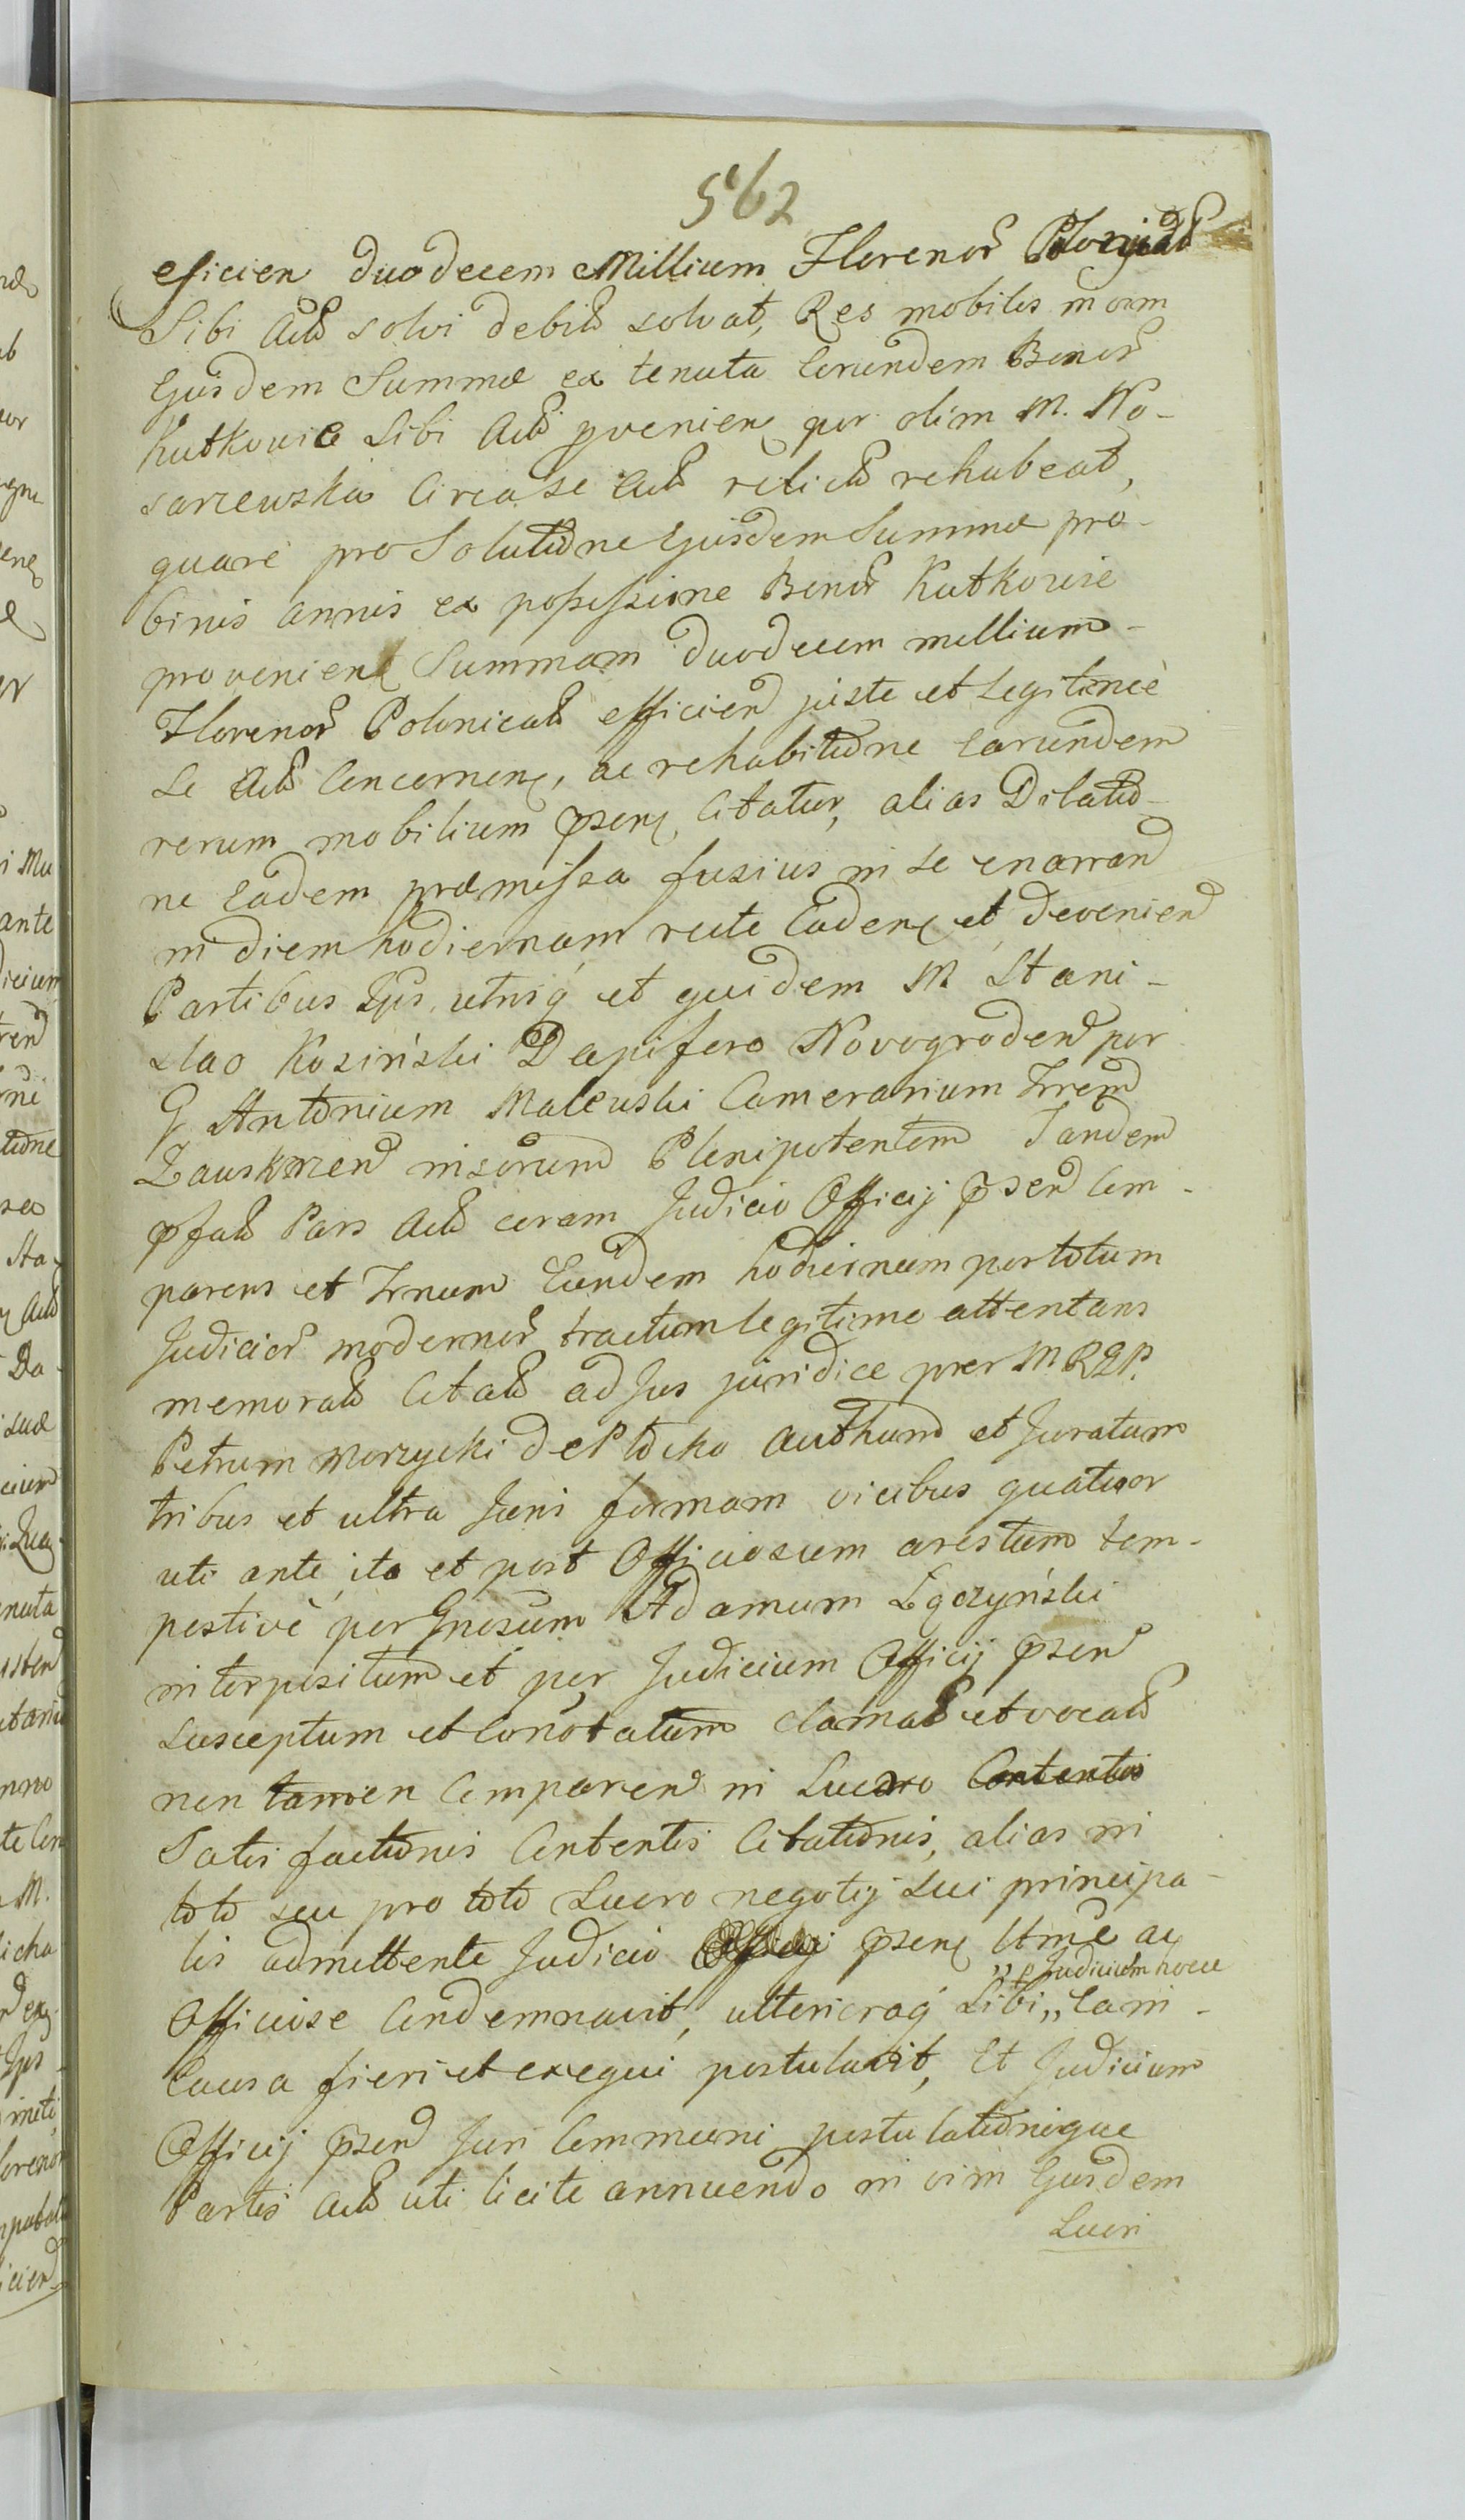 562
eficien duodecem Millium Florenor Polonical
Sibi Act solvi debit solvat, Res mobiles in orm
Ejusdem Summæ ex tenuta Eorundem Bonor
Kutkowie Sibi Act pvenien per olim M. No-
sarzewska Circa se Act relict rehabeat,
quare pro Solutione Ejusdem Summæ pro
binis annis ex possessione Bonor Kutkowie
provenien Summam duodecem millium
Florenor Polonical efficien juste et legitimè
Se Act Concernen, ac rehabitione Earundem
rerum mobilium psen Citatur, alias Dilatio-
ne Eadem præmissa fusius in se enarrand
in diem hodiernam recte Caden et devenien
Partibus Ips, utrisq et quidem M Stani-
slao Kosiński Dapifero Novogroden per
G Antonium Malewski Camerarium Trrem
Zauskrzen insorum Plenipotentem Tandem
pfat Pars Act coram Judicio Officij psen Com-
parens et Trnum Eundem hodiernum per totum
Judicior modernor tractum legitime attentans
memorat Citat ad Jus juridice prer M RGP.
Petrum Morzycki de Plocko Authum et Juratum
tribus et ultra Juris formam vicibus quatuor
uti ante ita et post Officiosum arestum tem-
pestivè per Gnosum Adamum Łączyński
interpositum et per Judicium Officij psen
susceptum et Connotatum clamat et vocat
non tamen Comparen in Lucro Contentis
Satisfactionis Contentis Citationis, alias in
toto seu pro toto Lucro negotij sui principa-
lis admittente Judicio Officij psen Utme ac
Officiose Condemnavit, ulterioraq Sibi „ p Judicium hocce „ Ea in
Causa fieri et exequi postulavit, Et Judicium
Officij psen Juri Communi postulationique
Partis Act uti licite annuendo in vim Ejusdem
Lucri